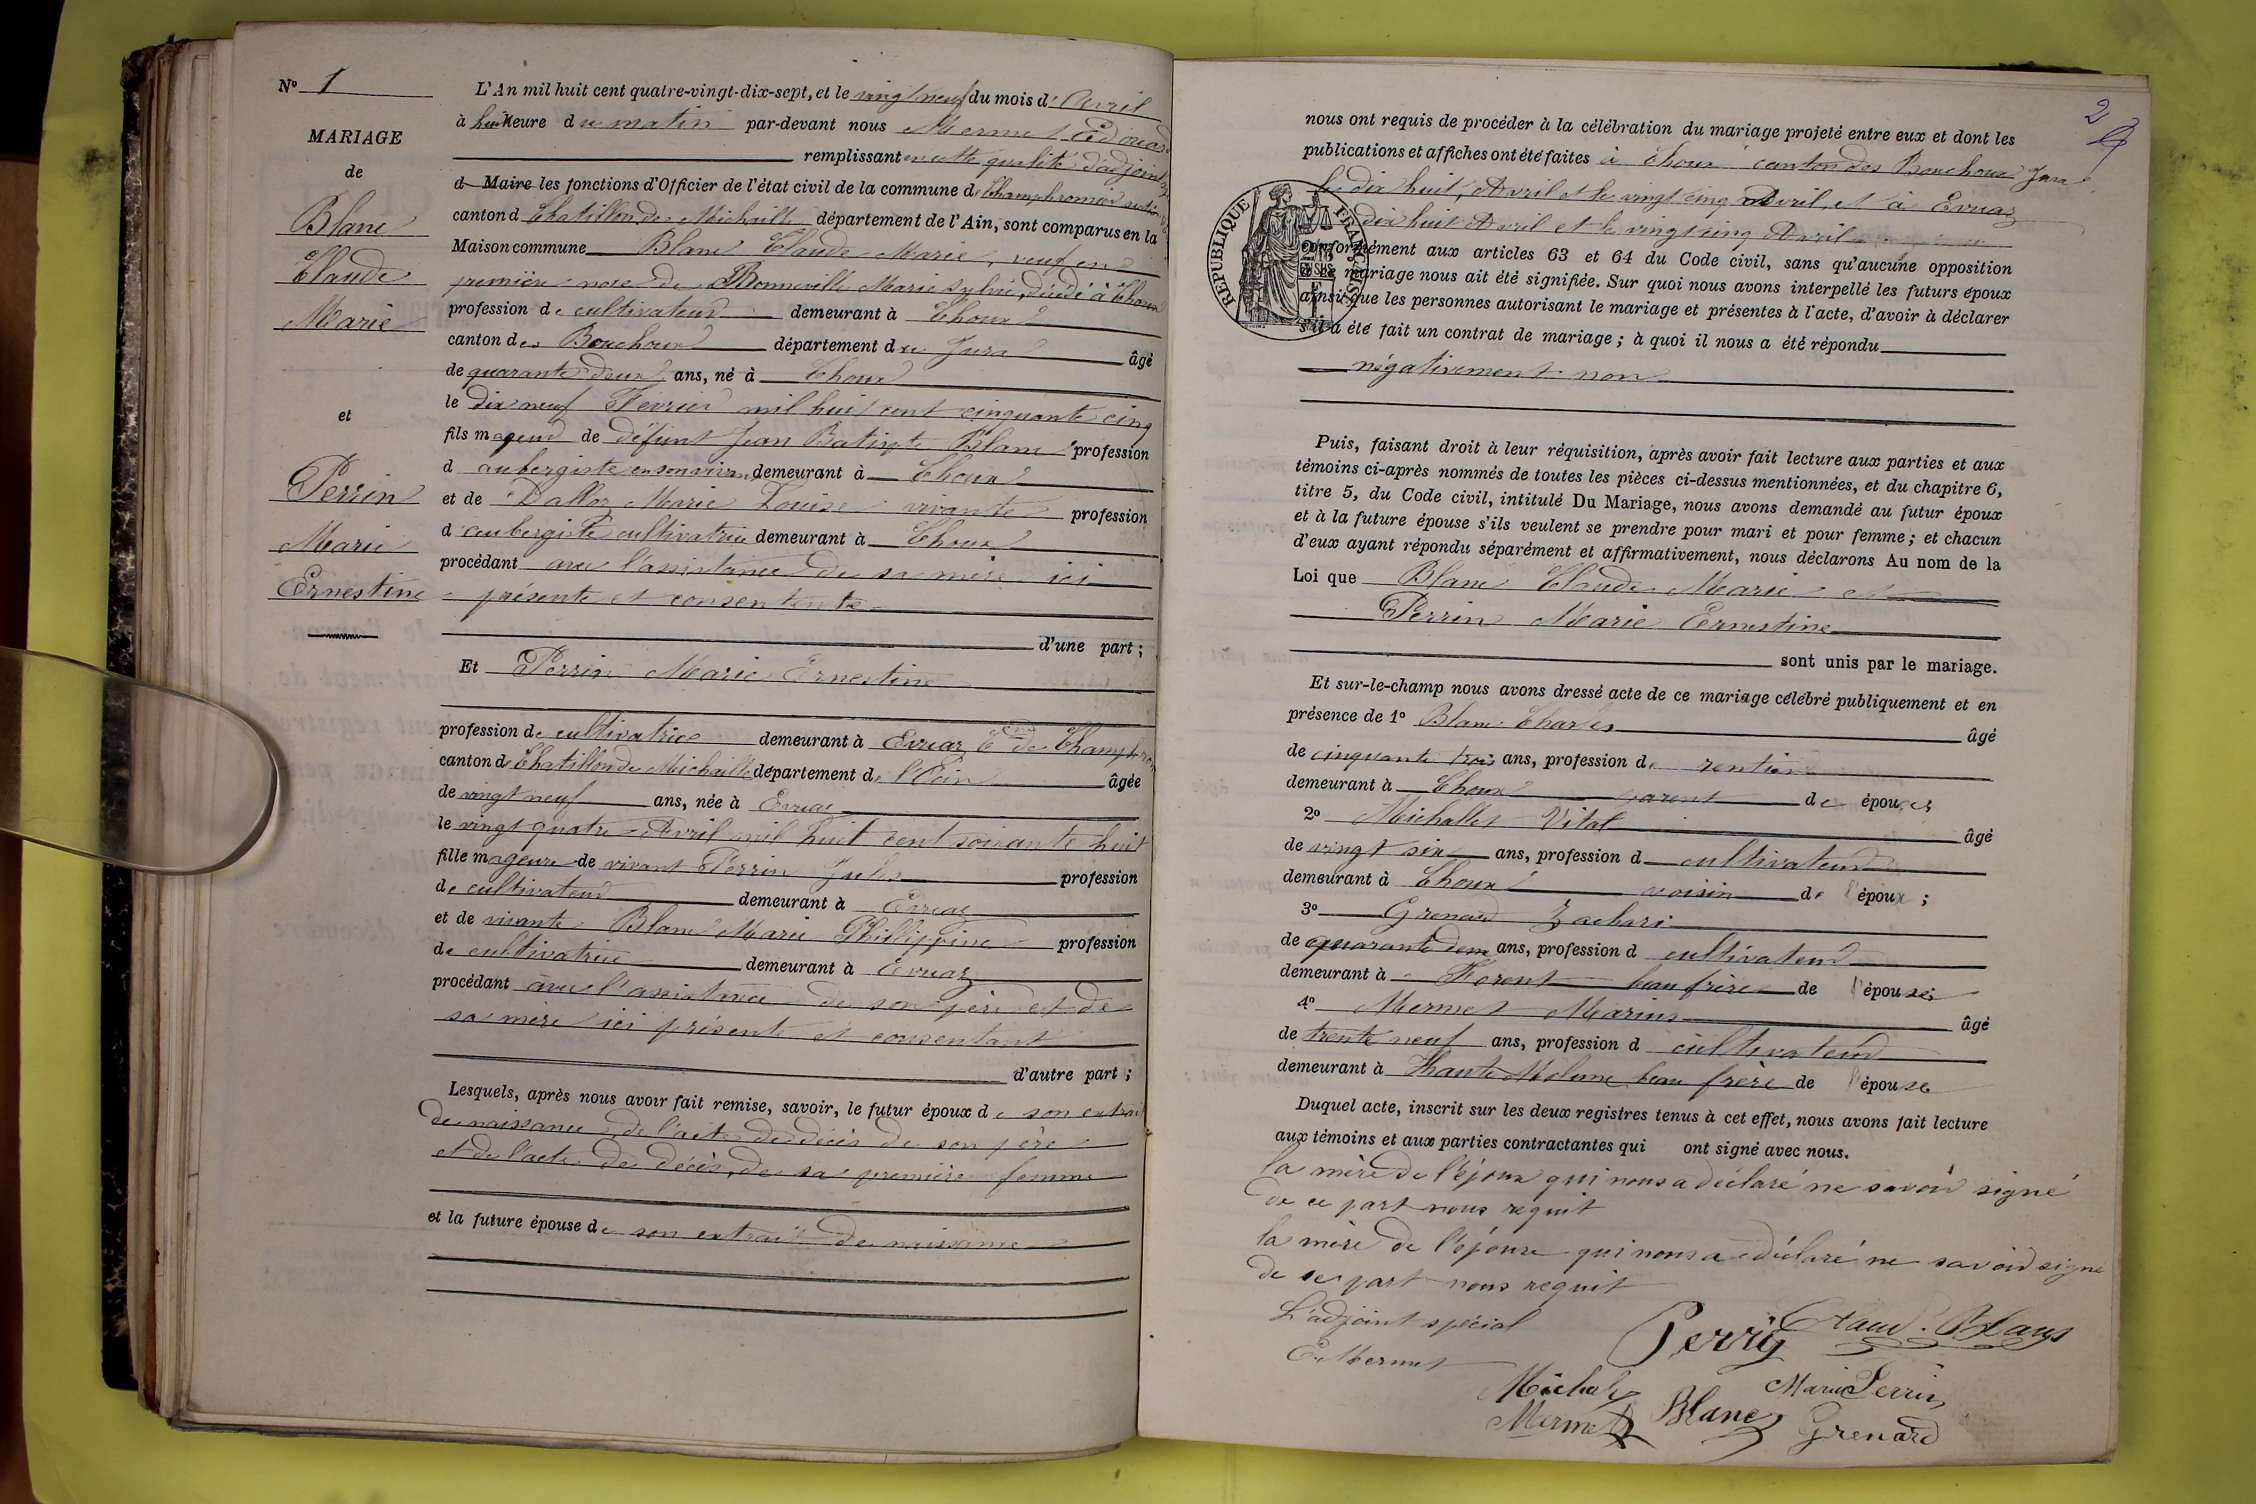 N° 1
MARIAGE
de
Blanc
Claude
Marie
et
Perrin
Marie
Ernestine
L'An mil huit cent quatre-vingt-dix-sept, et le vingt neuf du mois d'Avril
à huit heure du matin par-devant nous Mermet Edouard
remplissant en cette qualité d'adjoint
d Maire les fonctions d'Officier de l'état civil de la commune de Champfromier section
canton d Chatillon de Michaille département de l'Ain, sont comparus en la
Maison commune Blanc Claude Marie, veuf en
première noce de Bonneville Marie Sylvie, décédé à Choux
profession de cultivateur demeurant à Choux
canton des Bouchoux département du Jura âgé
de quarante deux ans, né à Choux
le dix neuf Février mil huit cent cinquante cinq
fils mageur de défunt Jean Batiste Blanc profession
d aubergiste en son vivant demeurant à Choux
et de Dalloz Marie Louise vivante profession
d'aubergiste cultivatrice demeurant à Choux
procédant avec l'assistance de sa mère ici
présente et consentente
d'une part ;
Et Perrin Marie Ernestine
profession de cultivatrice demeurant à Evuaz Cne de Champfro
canton de Chatillon de Michaille département de l'Ain âgée
de vingt neuf ans, née à Evuaz
le vingt quatre Avril mil huit cent soixante huit
fille mageure de vivant Perrin Jules profession
de cultivateur demeurant à Evuaz
et de vivante Blanc Marie Phillippine profession
de cultivatrice demeurant à Evuaz
procédant avec l'assistance de son père et de
sa mère ici présents et consentant
d'autre part ;
Lesquels, après nous avoir fait remise, savoir, le futur époux de son extrait
de naissance de l'acte de décès de son père
et de l'acte de décès de sa première femme
et la future épouse de son extrait de naissance
2
nous ont requis de procéder à la célébration du mariage projeté entre eux et dont les
publications et affiches ont été faites à Choux canton des Bouchoux Jura
le dix huit Avril et le vingt cinq Avril, et à Evuaz
dix huit Avril et le vingt cinq Avril
RÉPUBLIQUE FRANÇAISE
conformément aux articles 63 et 64 du Code civil, sans qu'aucune opposition
à ce mariage nous ait été signifiée. Sur quoi nous avons interpellé les futurs époux
ainsi que les personnes autorisant le mariage et présentes à l'acte, d'avoir à déclarer
s'il a été fait un contrat de mariage ; à quoi il nous a été répondu
négativement non
Puis, faisant droit à leur réquisition, après avoir fait lecture aux parties et aux
témoins ci-après nommés de toutes les pièces ci-dessus mentionnées, et du chapitre 6,
titre 5, du Code civil, intitulé Du Mariage, nous avons demandé au futur époux
et à la future épouse s'ils veulent se prendre pour mari et pour femme ; et chacun
d'eux ayant répondu séparément et affirmativement, nous déclarons Au nom de la
Loi que Blanc Claude Marie et
Perrin Marie Ernestine
sont unis par le mariage.
Et sur-le-champ nous avons dressé acte de ce mariage célébré publiquement et en
présence de 1° Blanc Charles âgé
de cinquante trois ans, profession de rentier
demeurant à Choux parent de époux ;
2° Michallet Vital âgé
de vingt six ans, profession d cultivateur
demeurant à Choux voisin de l'époux ;
3° Grenard Zachari
de quarante deux ans, profession d cultivateur
demeurant à Forent beau frère de l'épouse;
4° Mermet Marius âgé
de trente neuf ans, profession d cultivateur
demeurant à Haute Molune beau frère de l'épouse
Duquel acte, inscrit sur les deux registres tenus à cet effet, nous avons fait lecture
aux témoins et aux parties contractantes qui ont signé avec nous.
la mère de l'époux qui nous a déclaré ne savoir signé
de ce part nous requit
la mère de l'épouse qui nous a déclaré ne savoir signe
de se part nous requit
L'adjoint spécial
E. Mermet
Perrin Claud. Blanc
Michalet Marie Perrin
Mermet Blanc Grenard